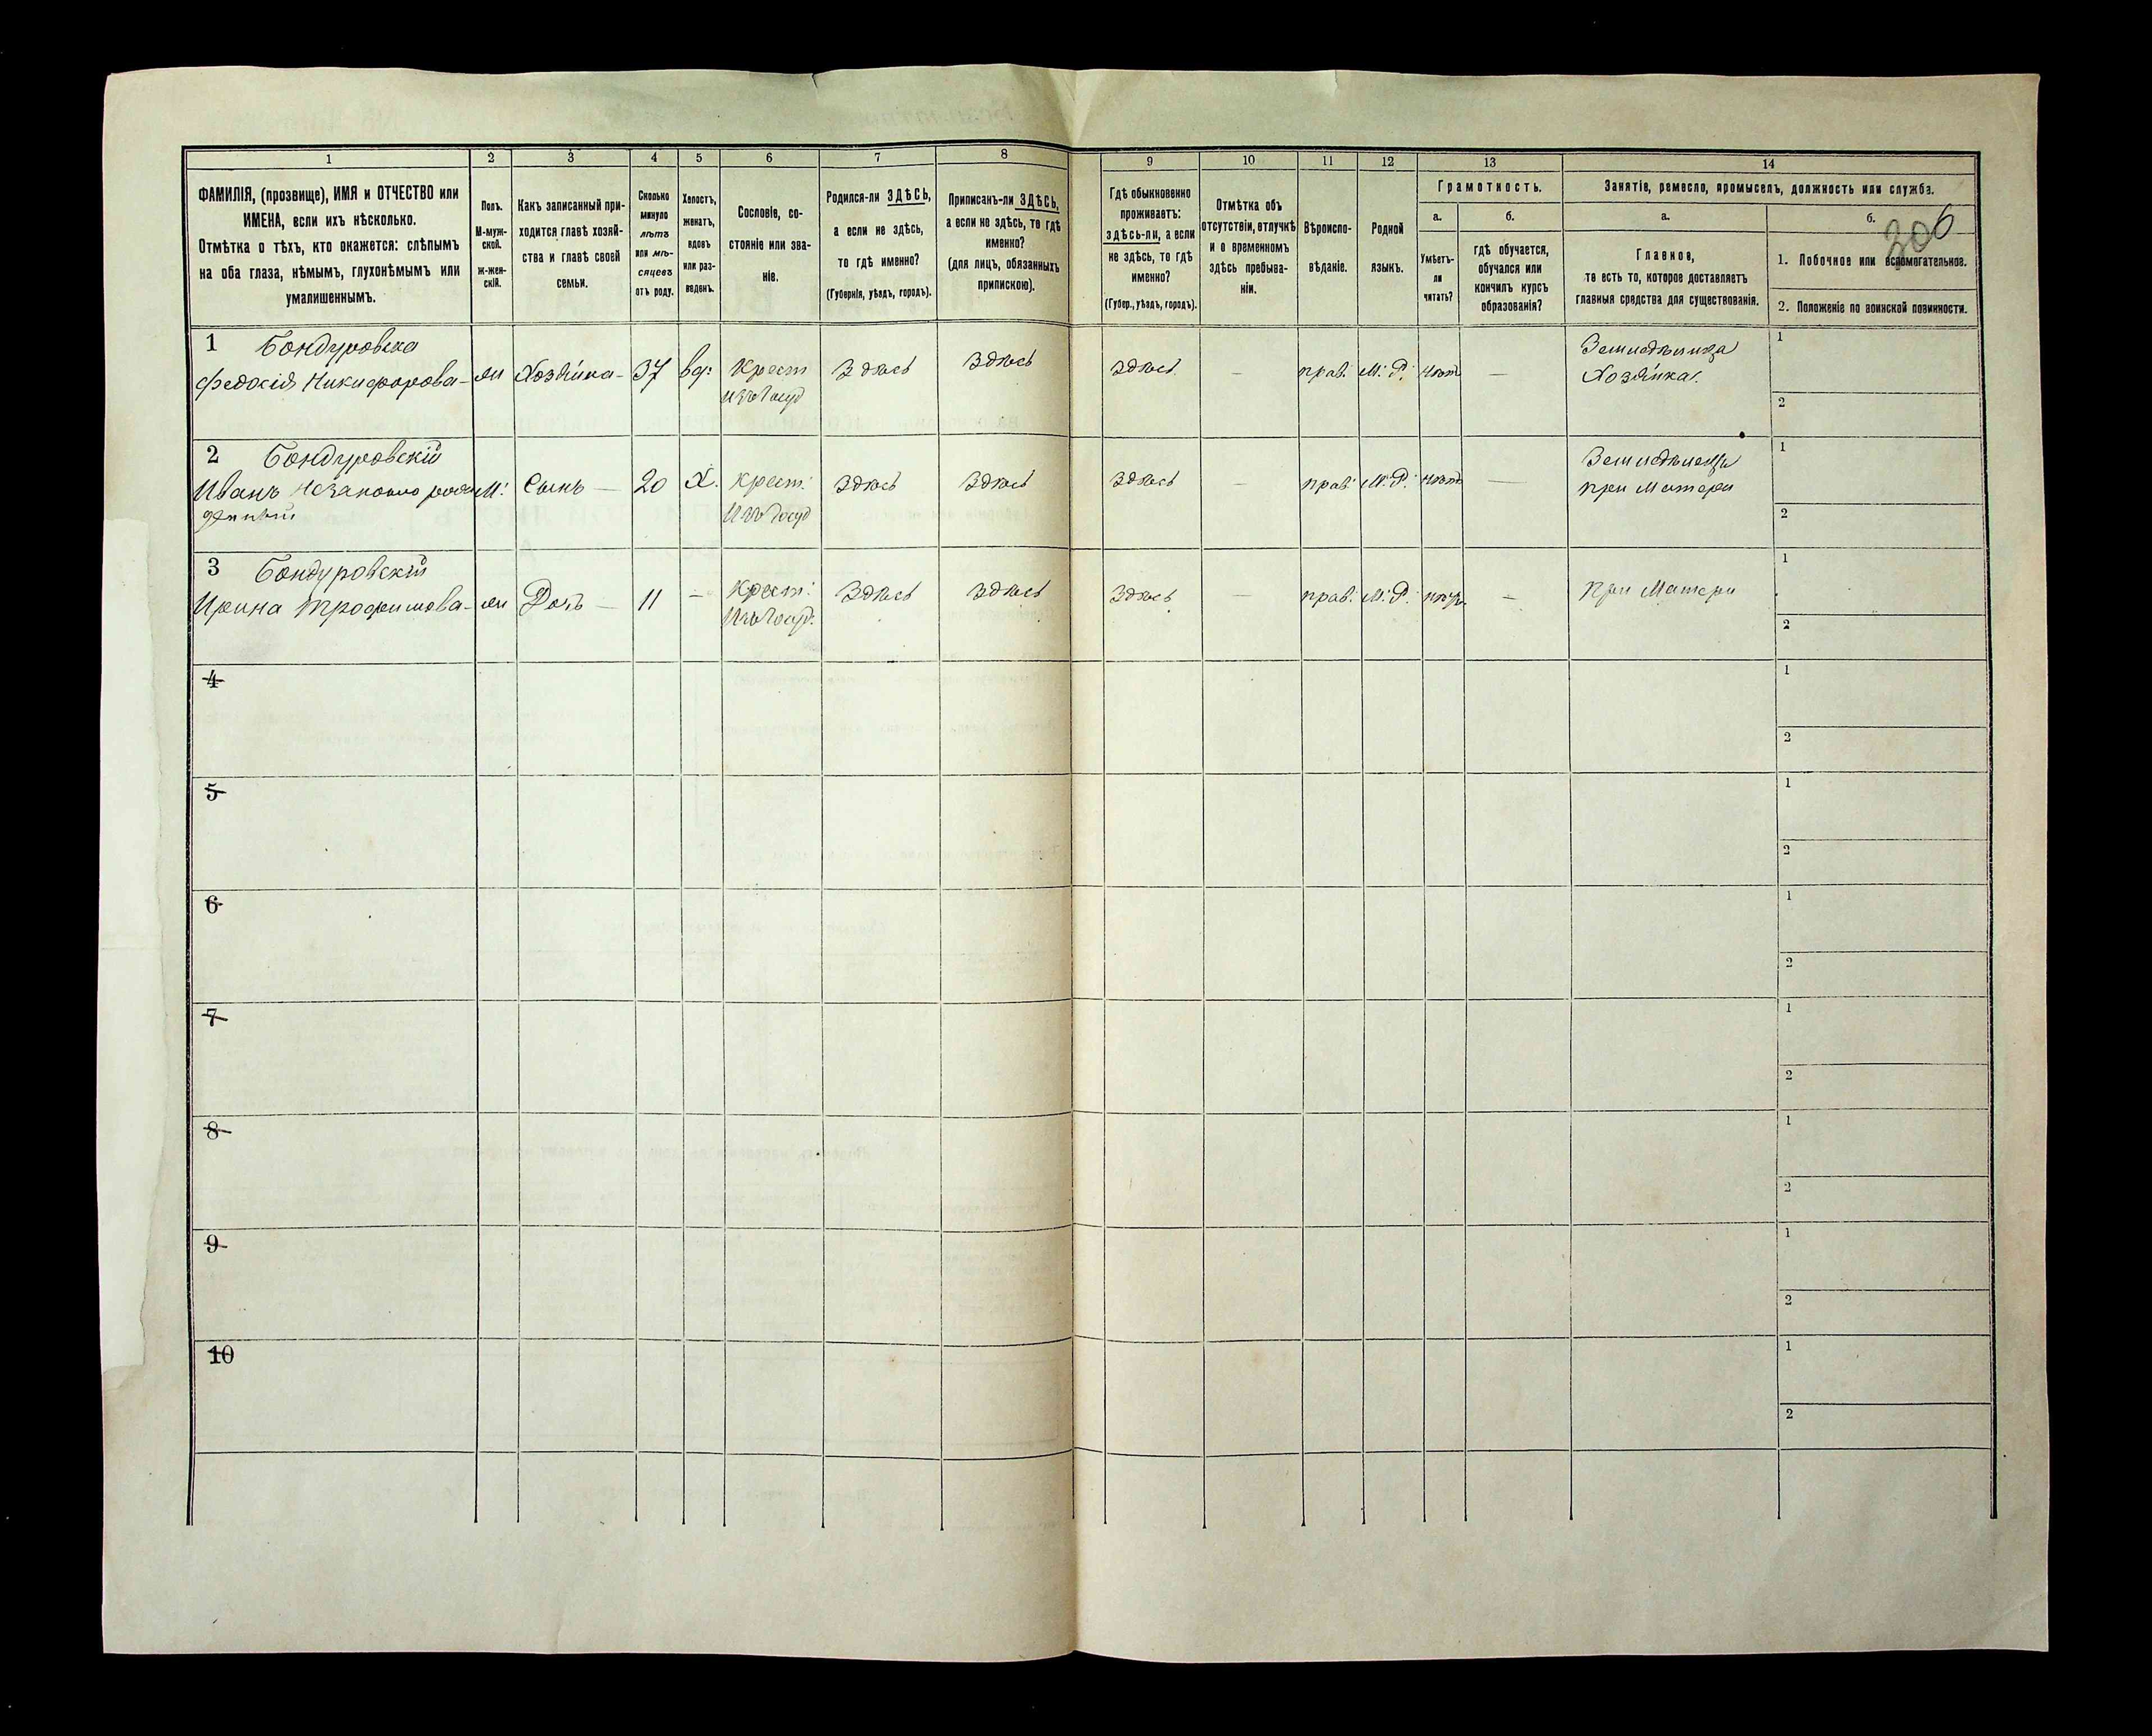 306
1 2 3 4 5 6 7 8 9 10 11 12 13 14
ФАМИЛІЯ, (прозвище), ИМЯ и ОТЧЕСТВО или
ИМЕНА, если ихъ нѣсколько.
Отмѣтка о тѣхъ, кто окажется: слѣпымъ
на оба глаза, нѣмымъ, глухонѣмымъ или
умалишеннымъ.
Полъ.
М-муж-
ской.
Ж-жен-
скій.
Какъ записанный при-
ходится главѣ хозяй-
ства и главѣ своей
семьи.
Сколько
минуло
лѣтъ
или мѣ-
сяцевъ
отъ роду.
Холостъ,
женатъ,
вдовъ
или раз-
веденъ.
Сословіе, со-
стояніе или зва-
ніе.
Родился-ли ЗДѢСЬ,
а если не здѣсь,
то гдѣ именно?
(Губернія, уѣздъ, городъ).
Приписанъ-ли ЗДѢСЬ,
а если не здѣсь, то гдѣ
именно?
(для лицъ, обязанныхъ
припискою).
Гдѣ обыкновенно
проживаетъ:
здѣсь-ли, а если
не здѣсь, то гдѣ
именно?
(Губер., уѣздъ, городъ).
Отмѣтка объ
отсутствіи, отлучкѣ
и о временномъ
здѣсь пребыва-
ніи.
Вѣроиспо-
вѣданіе.
Родной
языкъ.
Грамотность.
а.
Умѣетъ-
ли
читать?
б.
гдѣ обучается,
обучался или
кончилъ курсъ
образованія?
Занятіе, ремесло, промыселъ, должность или служба.
а.
Главное,
то есть то, которое доставляетъ
главныя средства для существованія.
б.
1. Побочное или вспомогательное.
2. Положеніе по воинской повинности.
1 Бондуровска
Федосія Никифорова - Хозяйка - 37 вд: Крест здѣсь здѣсь здѣсь - прав: М: Р: нѣтъ -
изъ Госуд
Хозяйка.
1
2
2 Бондуровскій
Иванъ незаконно рож М: Сынъ - 20 Х. Крест: здѣсь здѣсь здѣсь - прав: М: Р: нѣтъ -
денный
Изъ Госуд
при Матери
1
2
3 Бондуровскій
Ирина Трофимова - Дочь - 11 - Крест: здѣсь здѣсь здѣсь - прав: М: Р: - При Матери
Изъ Госуд:
1
2
4
1
2
5
1
2
6
1
2
7
1
2
8
1
2
9
1
2
10
1
2